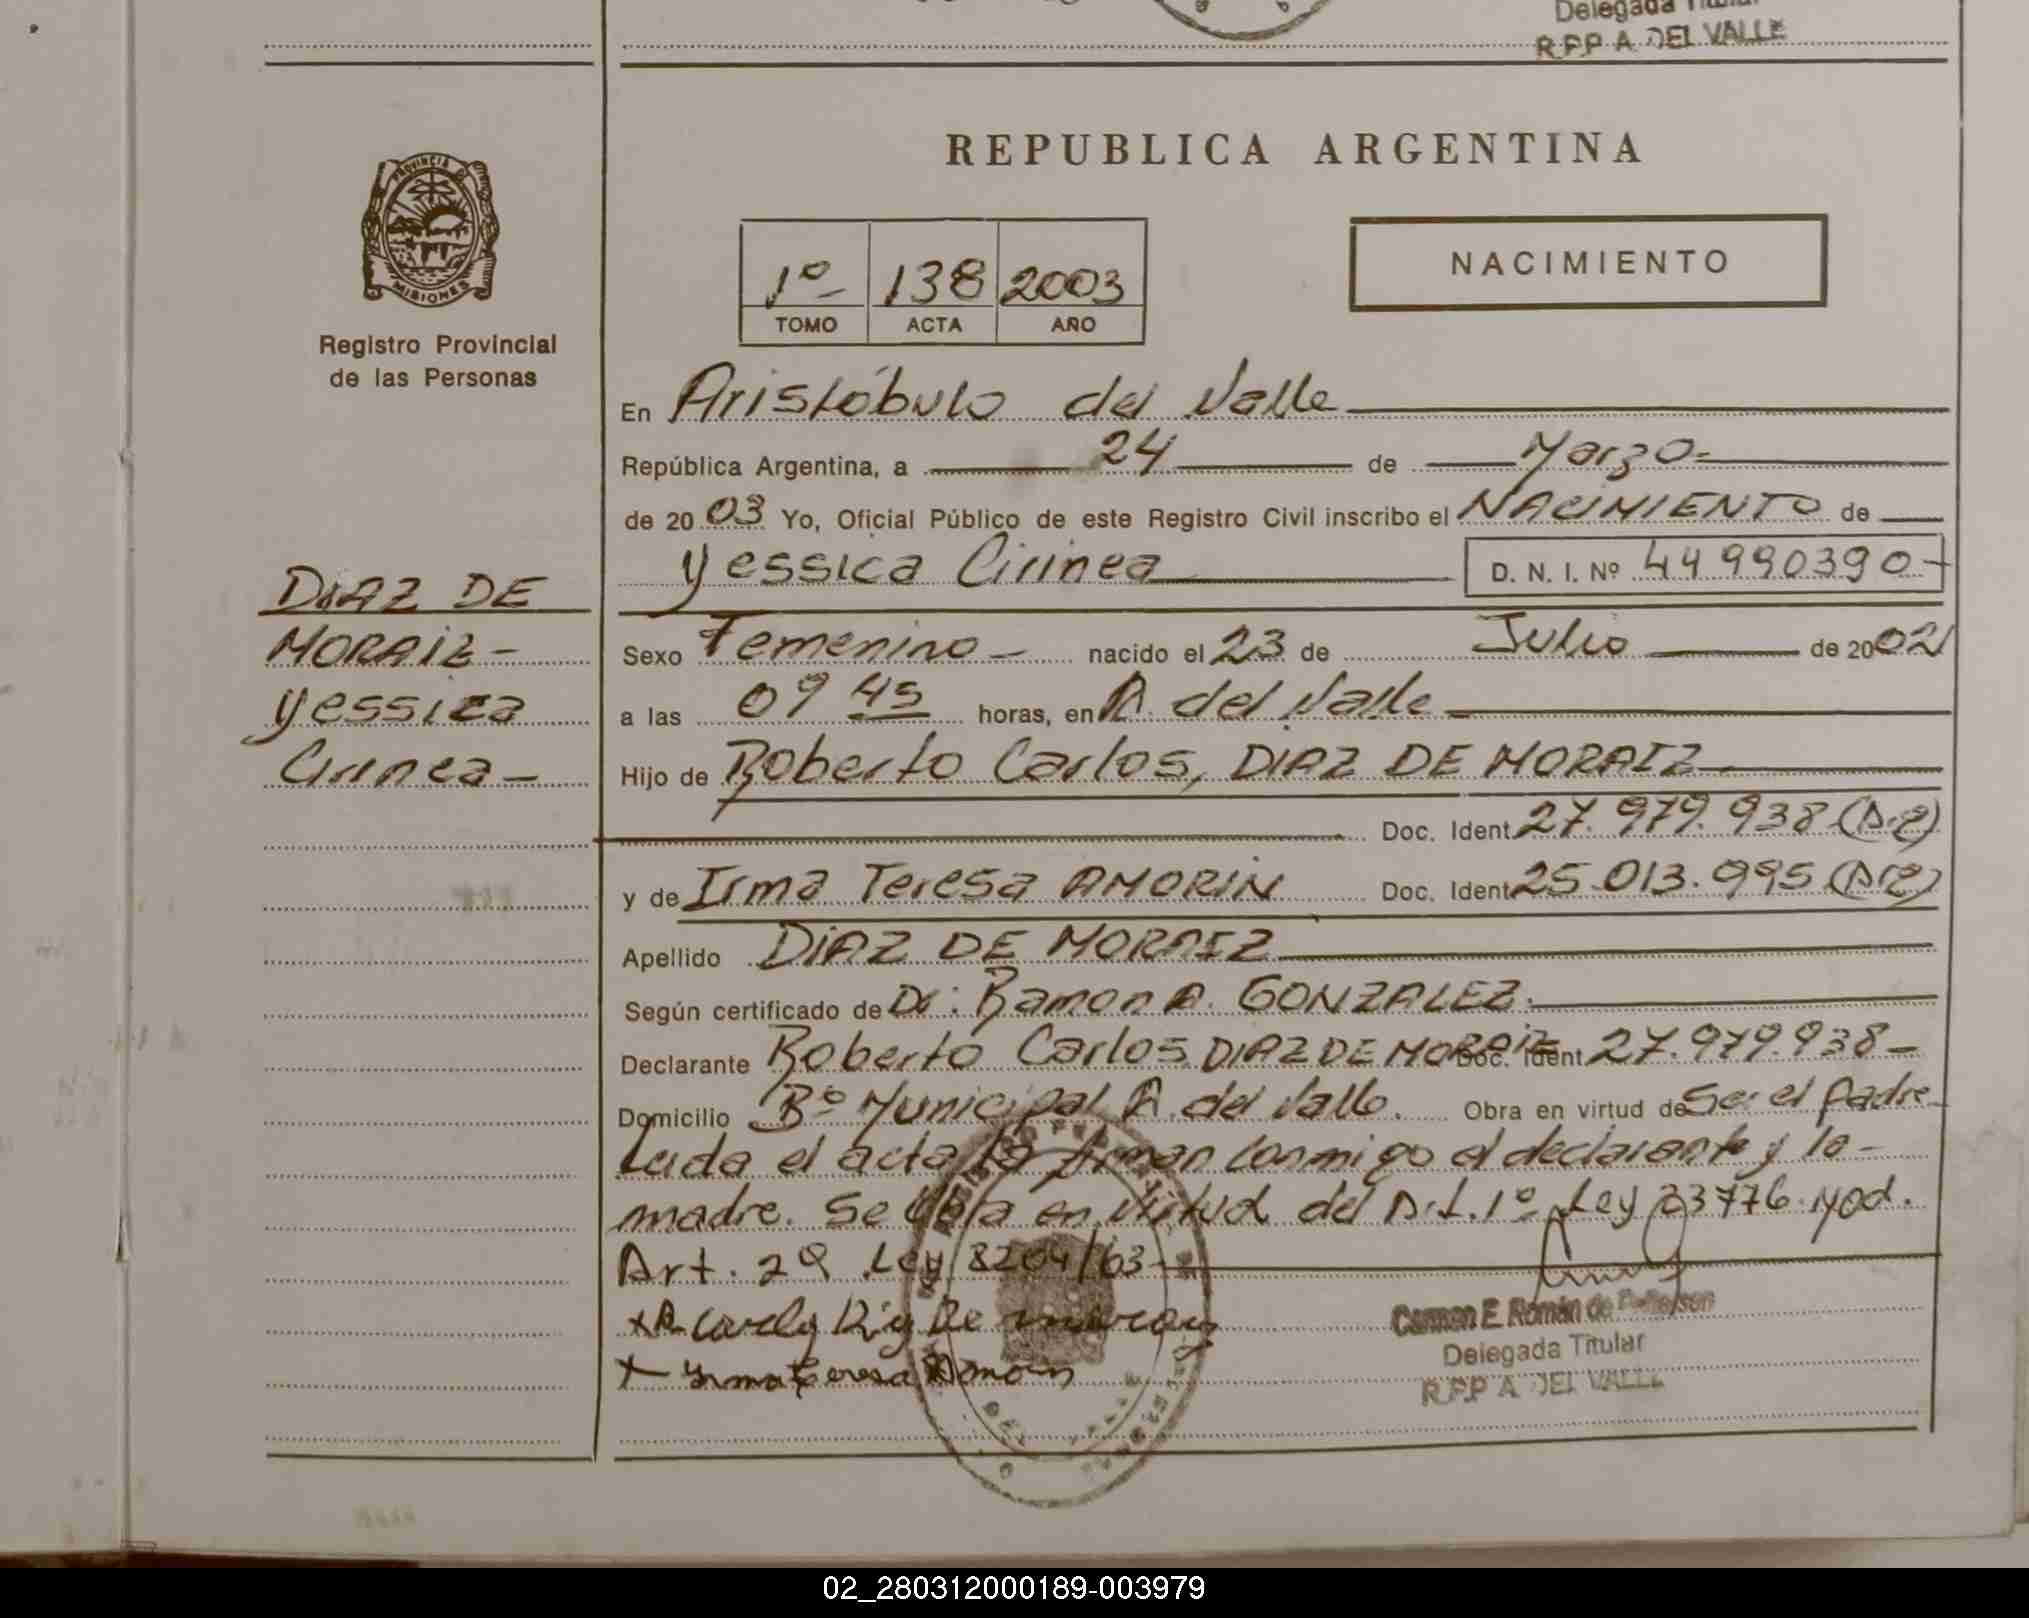 Delegada Titular
R.P.P A. DEL VALLE
PROVINCIA DE
MISIONES
Registro Provincial
de las Personas
REPUBLICA ARGENTINA
1º 138 2003
TOMO ACTA AÑO
NACIMIENTO
En Aristóbulo del Valle
República Argentina, a 24 de Marzo
de 2003 Yo, Oficial Público de este Registro Civil inscribo el NACIMIENTO de
Yessica Cirinea D. N. I. Nº 44990390
DIAZ DE
MORAIZ-
Yessica
Cirinea-
Sexo Femenino nacido el 23 de Julio de 2002
a las 09 45 horas, en A. del Valle
Hijo de Roberto Carlos, DIAZ DE MORAIZ
Doc. Ident 27.979.938
y de Irma Teresa AMORIN Doc. Ident 25.013.995
Apellido DIAZ DE MORAIZ
Según certificado de Dr: Ramon A. GONZALEZ.
Declarante Roberto Carlos DIAZ DE MORAIZ Doc. Ident 27.979.938-
Domicilio Bº Municipal A. del Valle. Obra en virtud de Ser el Padre
Leida el acta la firman conmigo el declarante y la-
madre. Se labra en virtud del Art. 1º Ley 23776 mod.
Art. 29 Ley 8204/63
Irma Teresa Amorin
Carmen E. Román de
Delegada Titular
R.P.P A. DEL VALLE
02_280312000189-003979